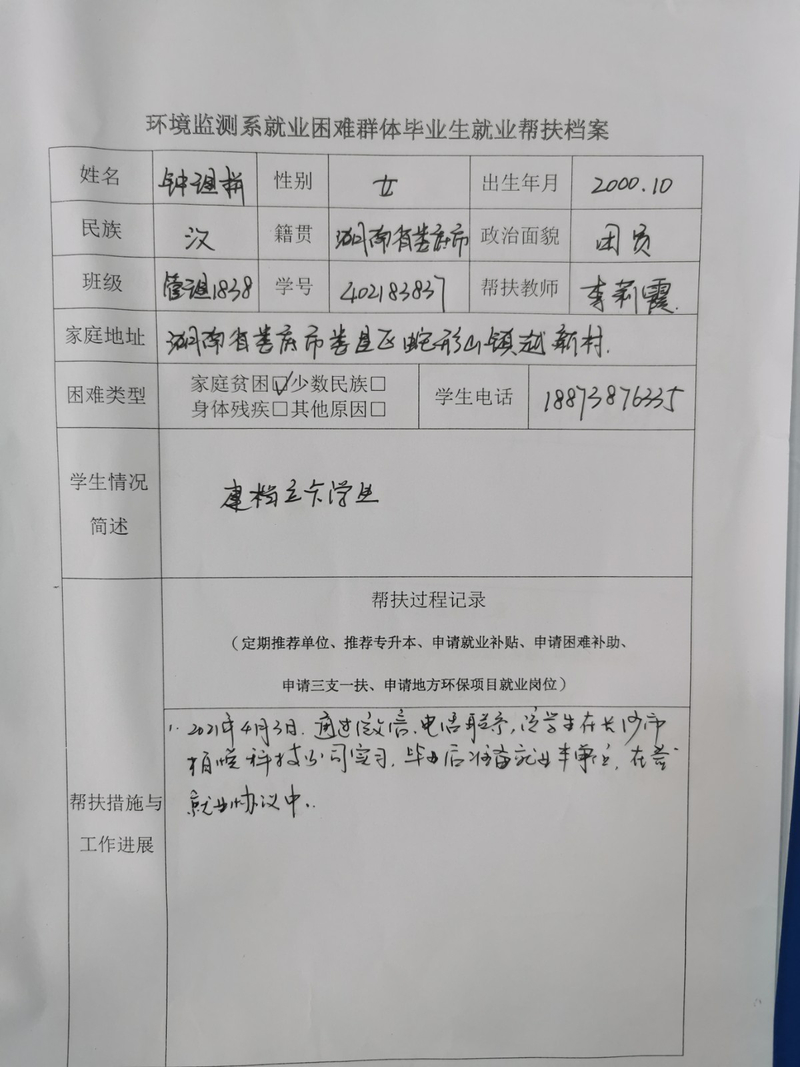 环境监测系就业困难群体毕业生就业帮扶档案
姓名 钟 性别 女 出生年月 2000.10
民族 汉 籍贯 湖南省娄底市 政治面貌 团员
班级 管理1838 学号 402183837 帮扶教师 李莉霞
家庭地址 湖南省娄底市娄星区蛇形山镇越新村.
困难类型 家庭贫困☑少数民族□
身体残疾□其他原因□ 学生电话 18873876335
学生情况
简述
建档立卡学生
帮扶过程记录
（定期推荐单位、推荐专升本、申请就业补贴、申请困难补助、
申请三支一扶、申请地方环保项目就业岗位）
帮扶措施与
工作进展
1. 2021年4月3日. 通过微信、电话联系, 该学生在长沙市
科技公司实习, 毕业后准备就业, 在签
就业协议中..